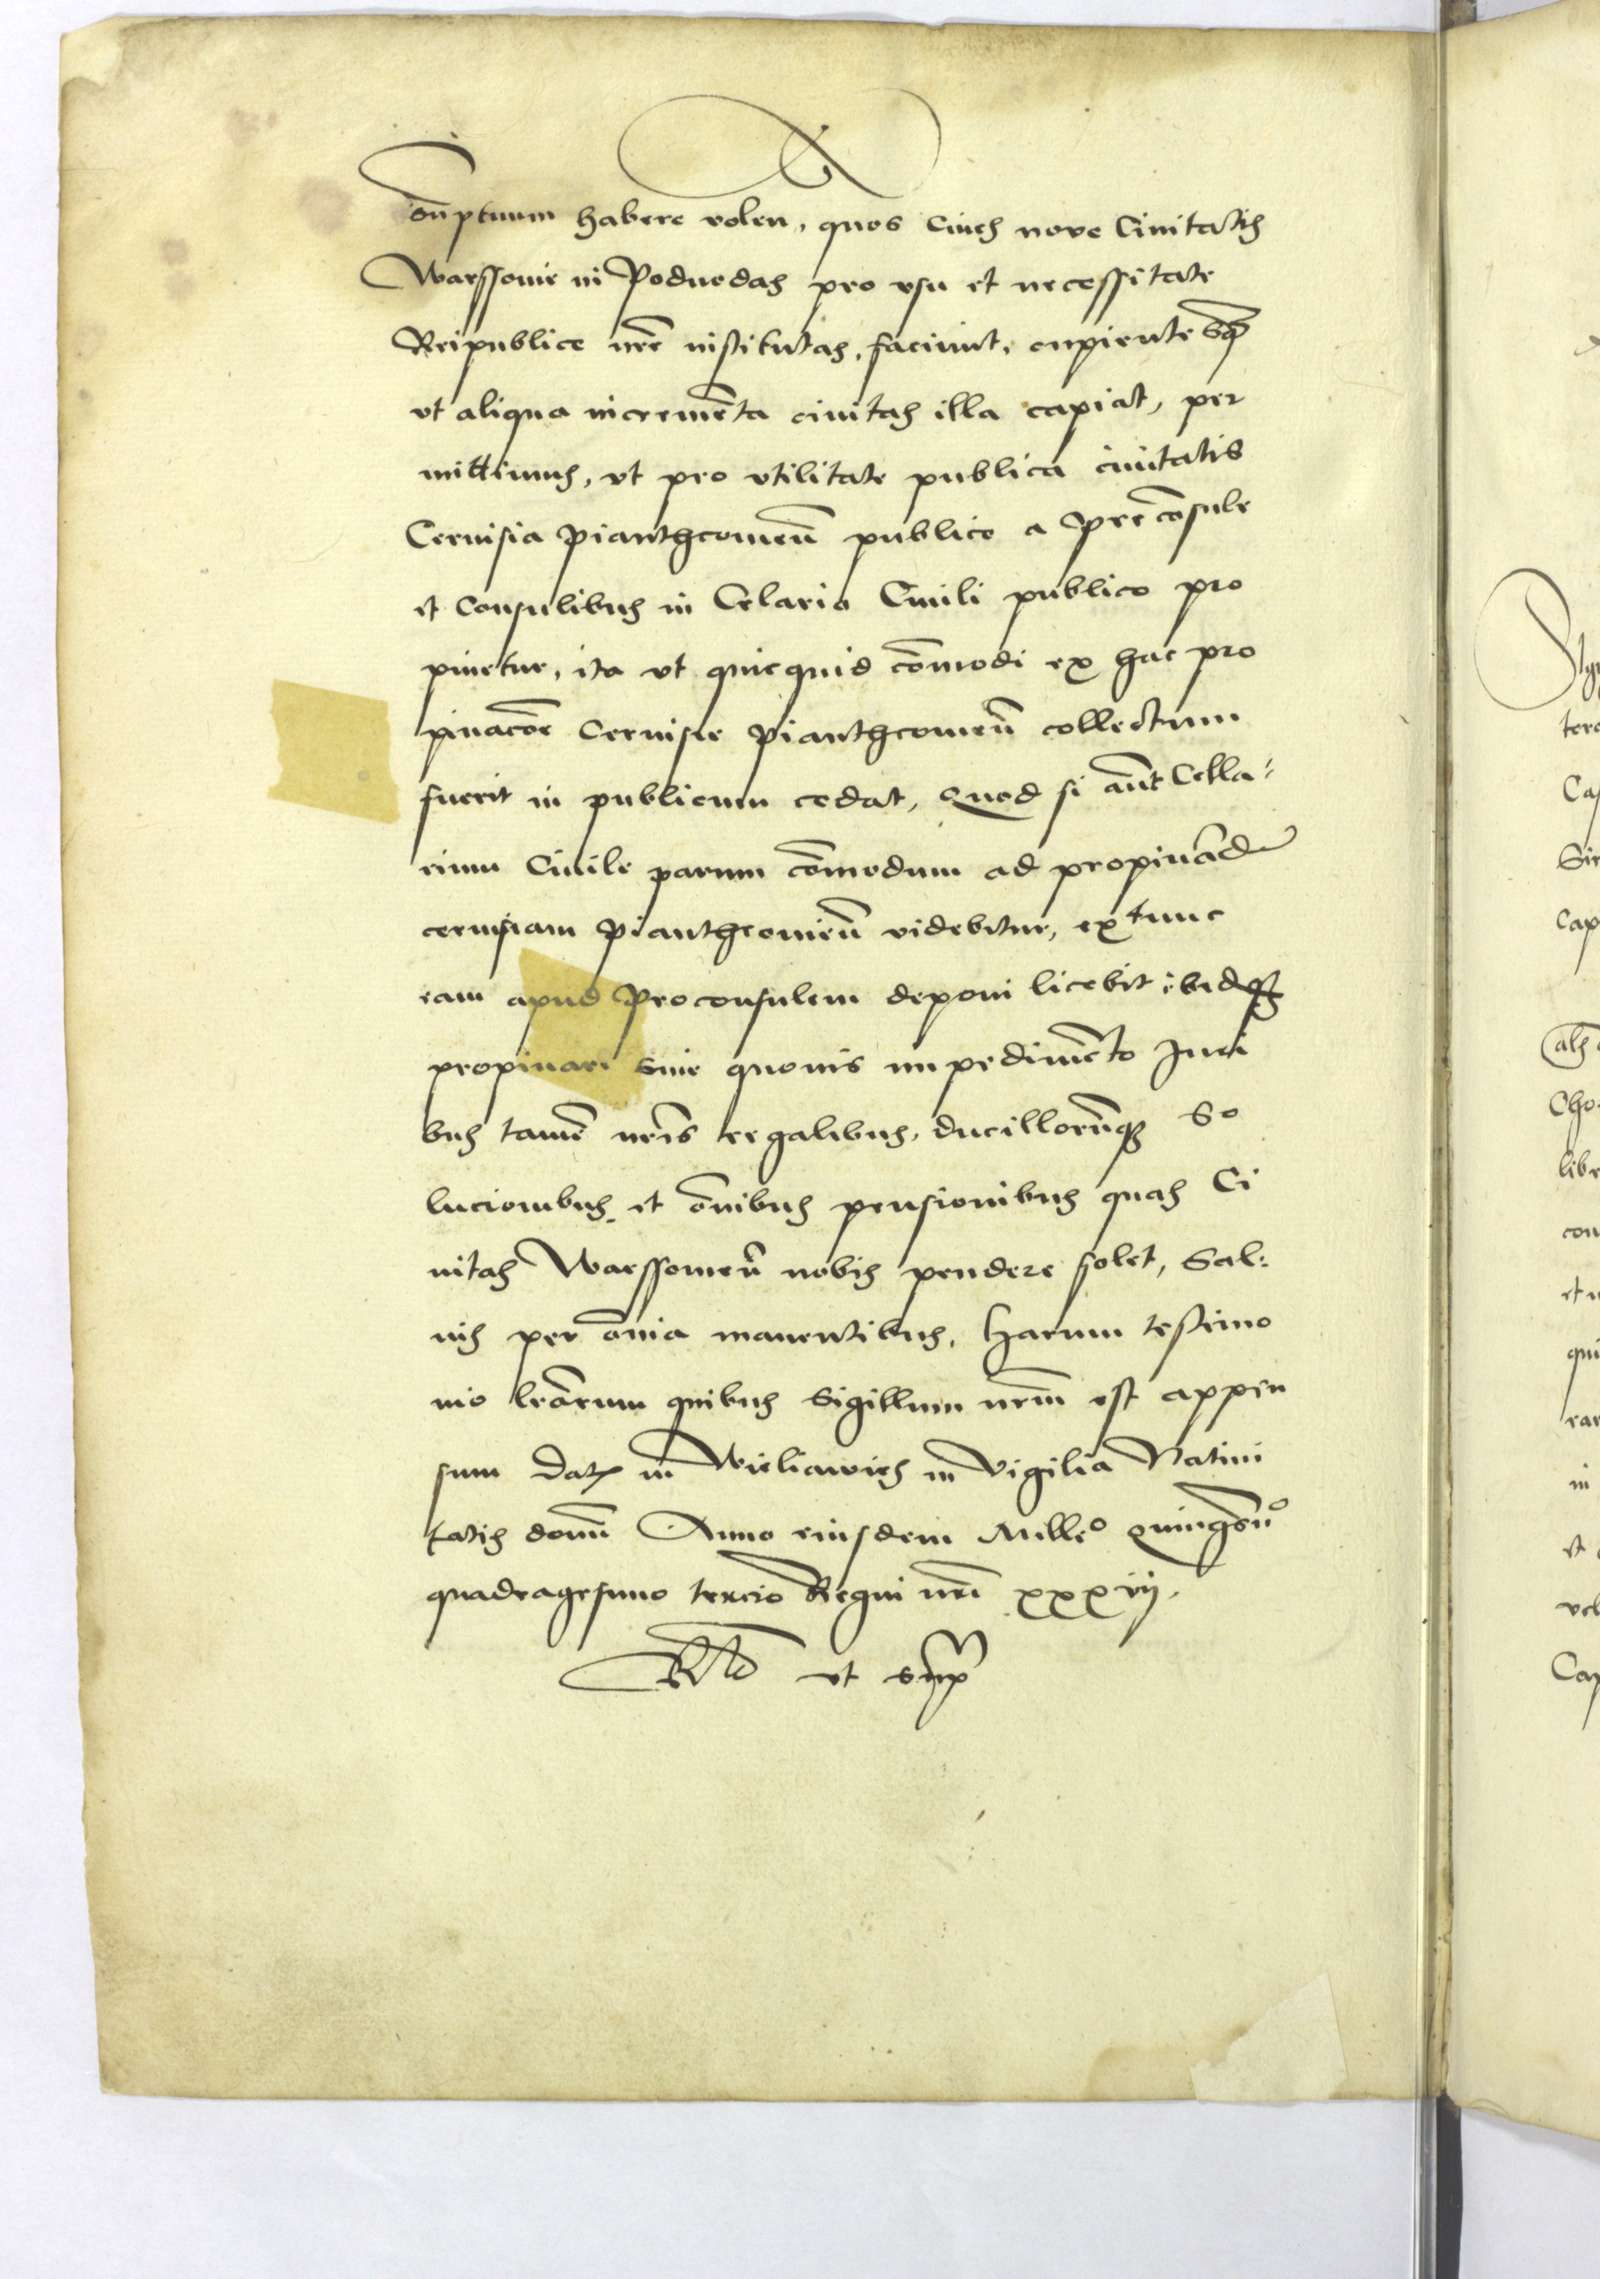 Sumptuum habere volen, quos Ciues noue Ciuitatis
Warssouie in Poduodas pro vsu et necessitate
Reipublice nrẽ institutas, faciunt, cupientesq̃
vt aliqua incremẽta ciuitas illa capiat, per
mittimus, vt pro vtilitate publica ciuitatis
Ceruisia Pianthcouieñ publice a Precõsule
et Consulibus in Celario Ciuili publico pro
pinetur, ita vt quicquid cõmodi ex hac pro
pinacõe Ceruisie Pianthcouieñ collectum
fuerit in publicum cedat, Quod si aũt Cella-
rium Ciuile parum cõmodum ad propinãd
ceruisiam Pianthcouieñ videbitur, ex tunc
eam apud Proconsulem deponi licebit ibidẽq3
propinari sine quouis impedimẽto Juri
bus tamẽ nrĩs regalibus, ducillorũq3 so
lucionibus et õnibus pensionibus quas Ci
uitas Warssouieñ nobis pendere solet, Sal-
uis per õnia manentibus, Harum testimo
nio lrãrum quibus Sigillum nrũm est appen
sum Dat in Wieliawies in Vigilia Natiui
tatis domĩ Anno eiusdem Milleº Quingẽñº
quadragesimo tercio Regni nrĩ xxxvij.
Rlo vt sup̃